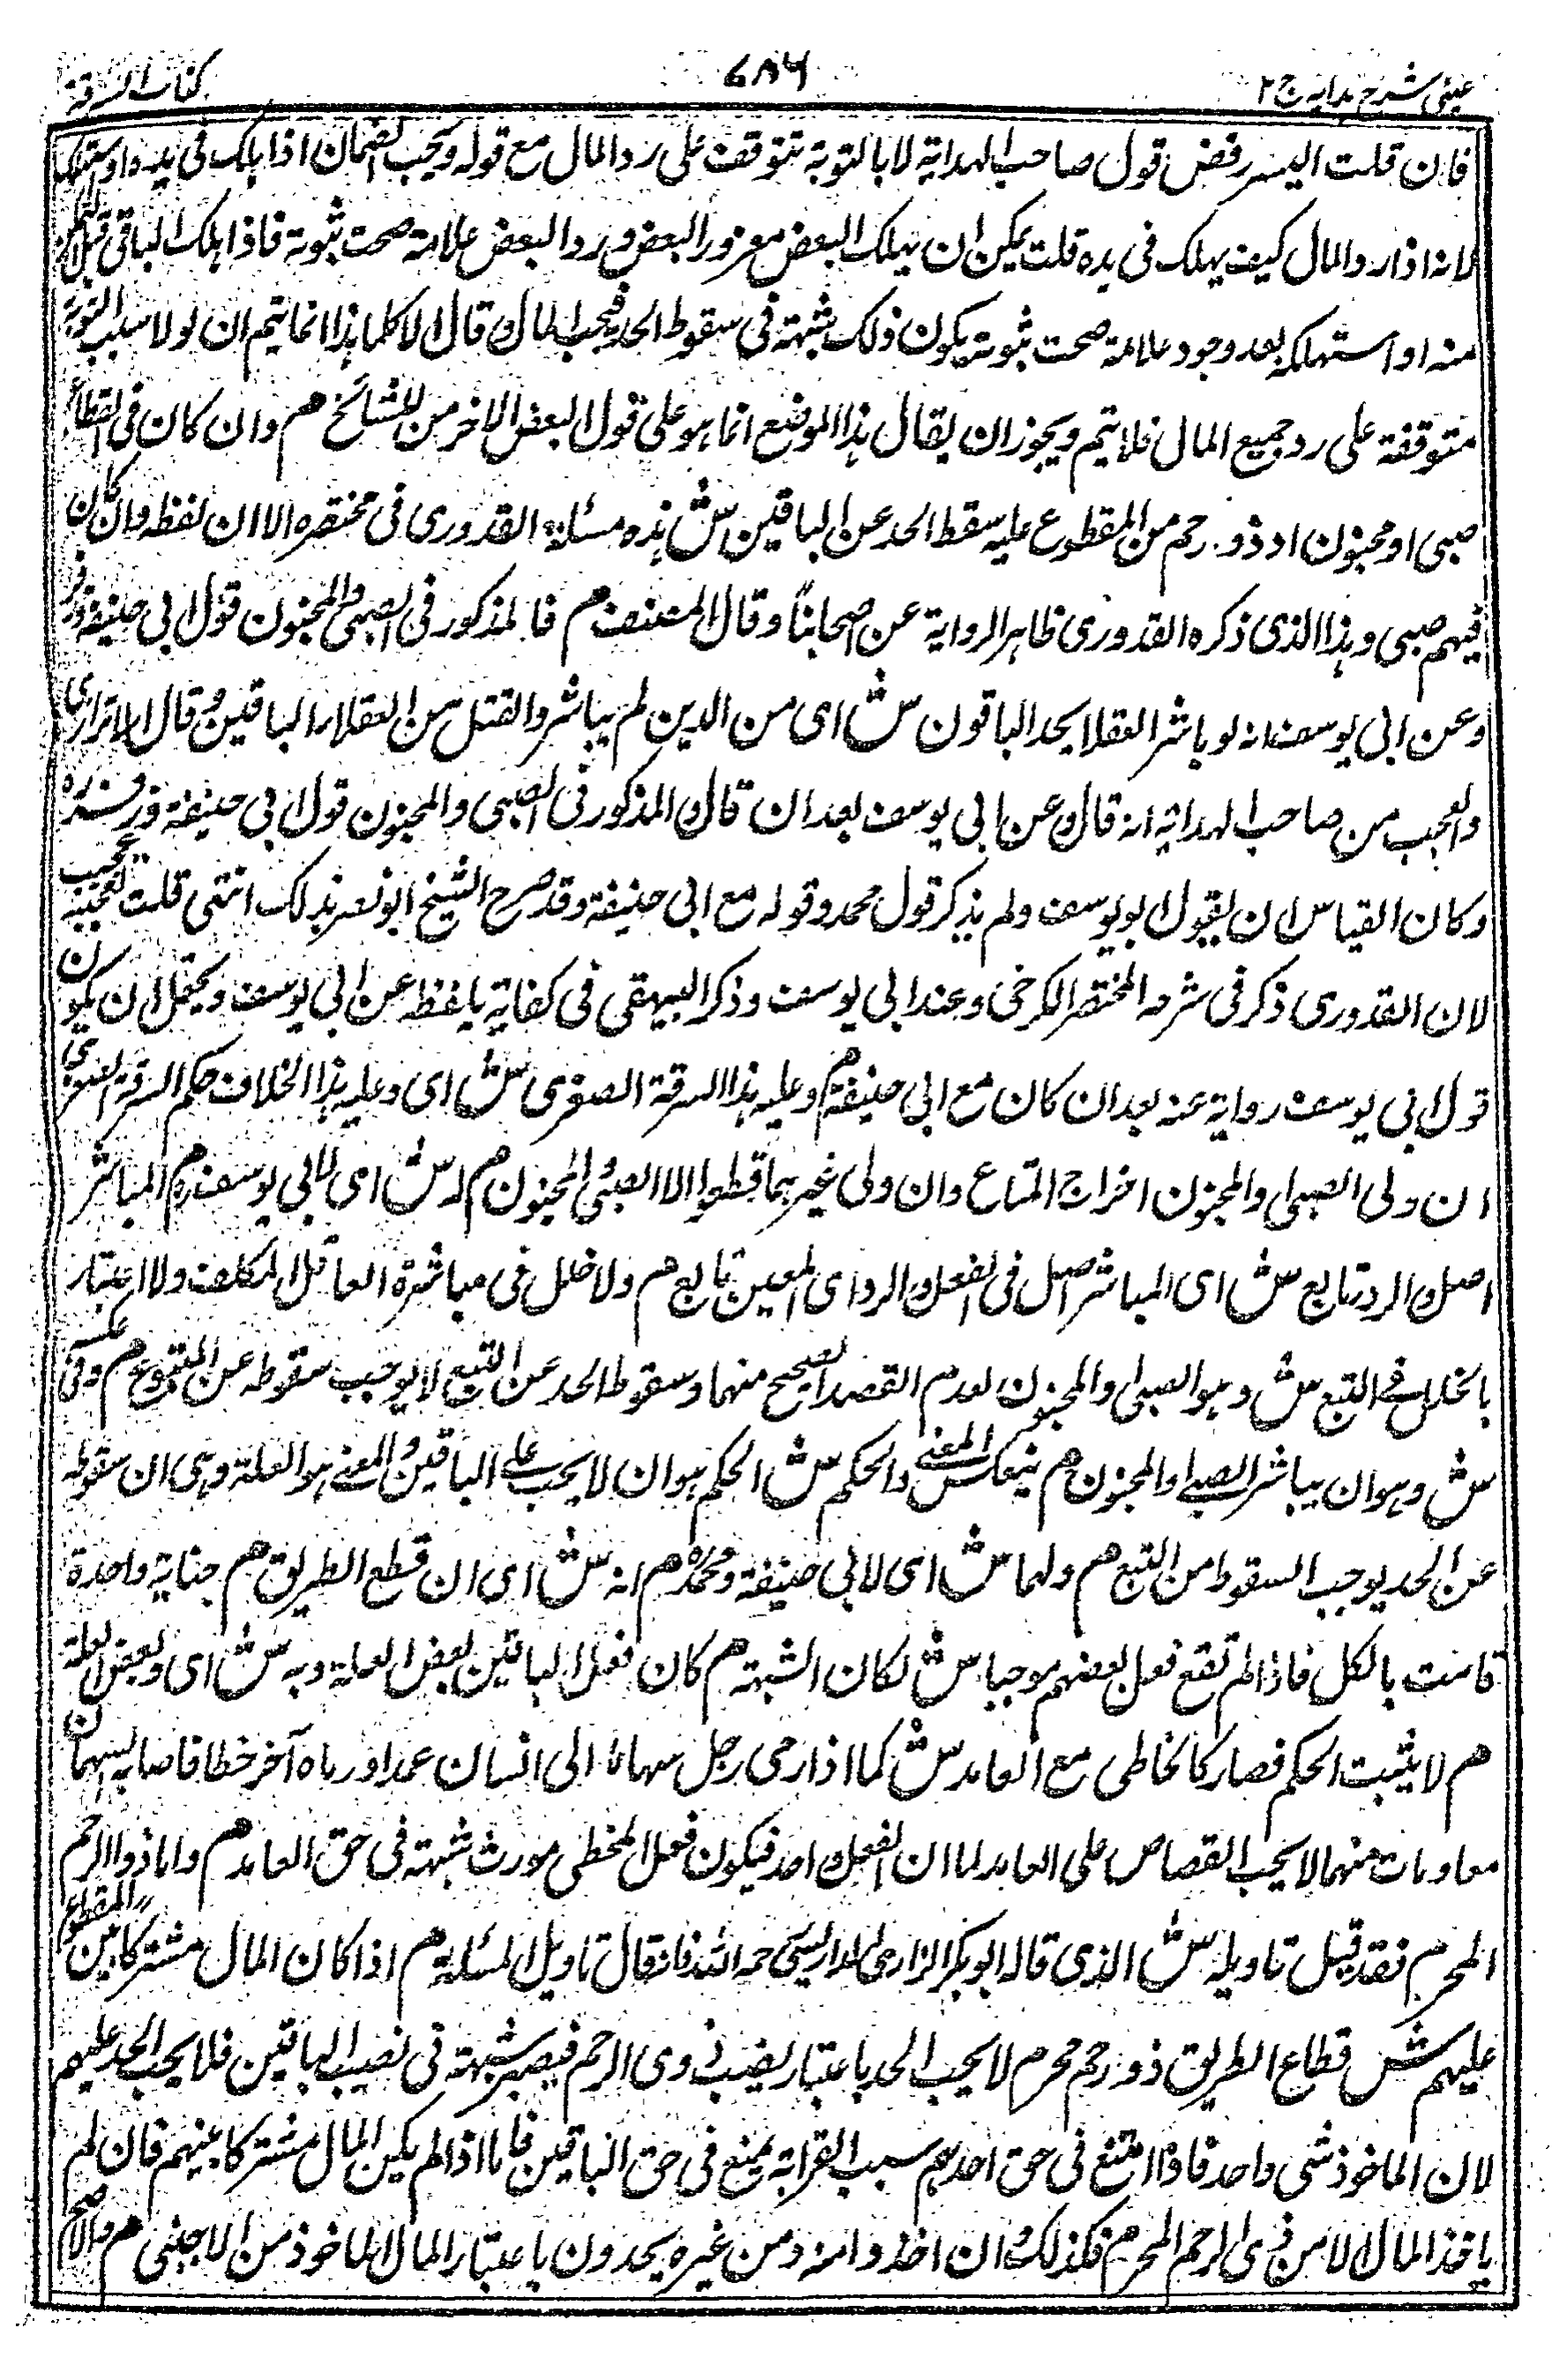 عینی شرح ہدایہ ج ۲
۷۸۶
کتاب السرقة
فان قلت اليس رفض قول صاحب الهداية لا بالتوبة تتوقف على رد المال مع قوله ويجب الضمان اذا هلك فى يده او استهلك
لانه اذا رد المال كيف يهلك فى يده قلت يمكن ان يهلك البعض ورد البعض علامة صحت توبته فاذا هلك الباقى قبل
منه او استهلكه بعد وجود علامة صحت توبته يكون ذلك شبهة فى سقوط الحد فيجب المال وقال الا كلما هذا انما يتم ان لو لا سبب التوبة
متوقفة على رد جميع المال فلا يتم ويجوز ان يقال هذا الموضع انما هو على قول البعض الاخر من المشائخ م وان كان فى القطاع
صبى او مجنون او ذو رحم من المقطوع عليه سقط الحد عن الباقين ش هذه مسئلة القدورى فى مختصره الا ان لفظه وان كان
فيهم صبى وهذا الذى ذكره القدورى ظاهر الرواية عن اصحابنا وقال المصنف م فالمذكور فى الصبى والمجنون قول ابى حنيفة وزفر
وعن ابى يوسف انه لو باشر العقلا يحد الباقون ش اى من الذين لم يباشروا القتل من العقلاء الباقين وقال الاترازى
والعجب من صاحب الهداية انه قال وعن ابى يوسف بعد ان قال والمذكور فى الصبى والمجنون قول ابى حنيفة وزفر
وكان القياس ان يقول ابو يوسف ولم يذكر قول محمد وقوله مع ابى حنيفة وقد صرح الشيخ ابو نصر بذلك انتهى قلت تعجبه عجيب
لان القدورى ذكر فى شرحه المختصر الكرخى وعند ابى يوسف وذكر البيهقى فى كفاية بلفظ عن ابى يوسف ويحتمل ان يكون
قول ابى يوسف رواية عنه بعد ان كان مع ابى حنيفة م وعليه هذا السرقة الصغرى ش اى وعليه هذا الخلاف حكم السرقة الصغرى
ان ولى الصبى والمجنون اخراج المتاع وان ولى غيرهما قطعوا الا الصبى والمجنون م له ش اى لابى يوسف رح م المباشر
اصل والردء تابع ش اى المباشر اصل فى الفعل والردء اى المعين تابع م ولا خلل فى مباشرة العاقل المكلف ولا اعتبار
بالخلل فى التبع ش وهو الصبى والمجنون لعدم القصد الصحيح منهما وسقوط الحد عن التبع لا يوجب سقوطه عن المتبوع م وفى عكسه
ش وهو ان يباشر الصبى والمجنون م ينعكس المعنى والحكم ش الحكم هو ان لا يجب على الباقين والمعنى هو العلة وهى ان سقوط
عن الحد يوجب السقوط من التبع م ولهما ش اى لابى حنيفة ومحمد م انه ش اى ان قطع الطريق م جناية واحدة
قامت بالكل فاذا لم تقع فعل بعضهم موجبا ش لكان الشبهة م كان فعل الباقين بعض العلة وبه ش اى وببعض العلة
م لا يثبت الحكم فصار كالخاطى مع العامد ش كما اذا رمى رجل سهما الى انسان عمدا ورماه آخر خطا فاصابه السهمان
معا ومات منهما لا يجب القصاص على العامد لما ان الفعل واحد فيكون فعل المخطى مورث شبهة فى حق العامد م واما ذو الرحم
المحرم فقد قيل تاويله ش الذى قاله ابو بكر الرازى رحمه الله فانه قال تاويل المسئلة م اذا كان المال مشتركا بين المقطوع
عليهم ش قطاع الطريق ذو رحم محرم لا يجب الحد باعتبار نصيب ذوى الرحم فيصير شبهة فى نصيب الباقين فلا يجب الحد عليهم
لان الماخوذ شى واحد فاذا امتنع فى حق احدهم سبب القرابة يمنع فى حق الباقين فاما اذا لم يكن المال مشتركا بينهم فان لم
ياخذ المال الا من ذى الرحم المحرم فكذلك وان اخذوا منه ومن غيره يحدون باعتبار المال الماخوذ من الاجنبى م والاصح